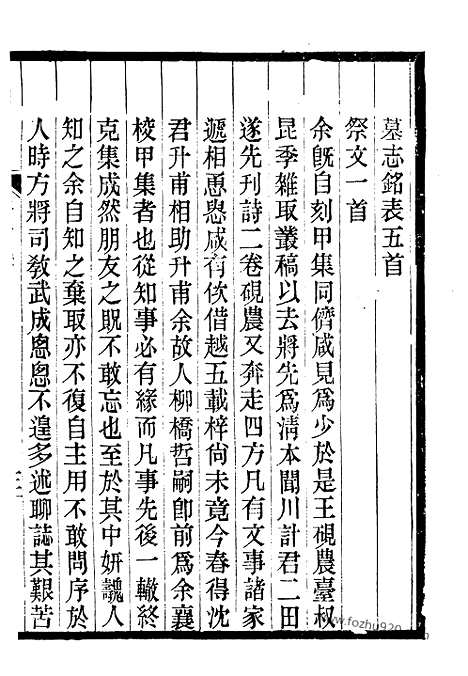 墓志銘表五首
祭文一首
余旣自刻甲集同儕咸見爲少於是王硯農臺叔
昆季雜取叢稿以去將先爲淸本聞川計君二田
遂先刊詩二卷硯農又奔走四方凡有文事諸家
遞相慫慂咸有佽借越五載梓尙未竟今春得沈
君升甫相助升甫余故人柳橋哲嗣卽前爲余襄
校甲集者也從知事必有緣而凡事先後一轍終
克集成然朋友之貺不敢忘也至於其中妍醜人
知之余自知之棄取亦不復自主用不敢問序於
人時方將司敎武成悤悤不遑多述聊誌其艱苦
www.fozhu920.com